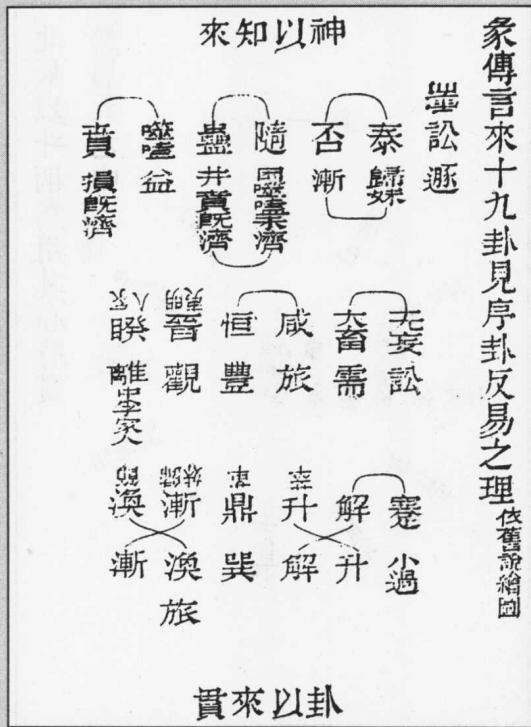 彖傳言來十九卦見序卦反易之理 依舊說繪圖
神以知來
訟 遯
泰 歸妹
否 漸
隨 困噬嗑未濟
蠱 井賁旣濟
噬嗑 益
賁 損旣濟
无妄 訟
大畜 需
咸 旅
恒 豐
明夷 晉 觀
家人 睽 離中孚
蹇 小過
解 升
萃 升 解
革 鼎 巽
歸妹 漸 渙旅
節 渙 漸
卦以來貫